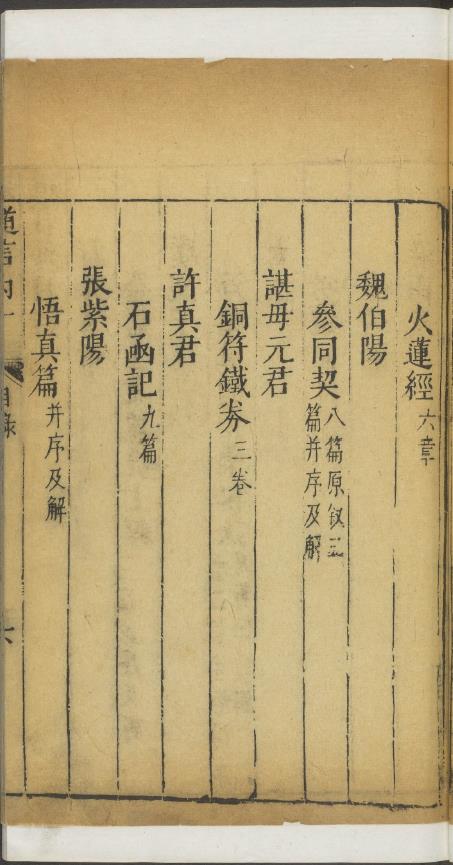 火蓮經六章
魏伯陽
參同契八篇原敘三篇并序及解
諶母元君
銅符鐵券三卷
許真君
石函記九篇
張紫陽
悟真篇并序及解
道言內
目錄
六